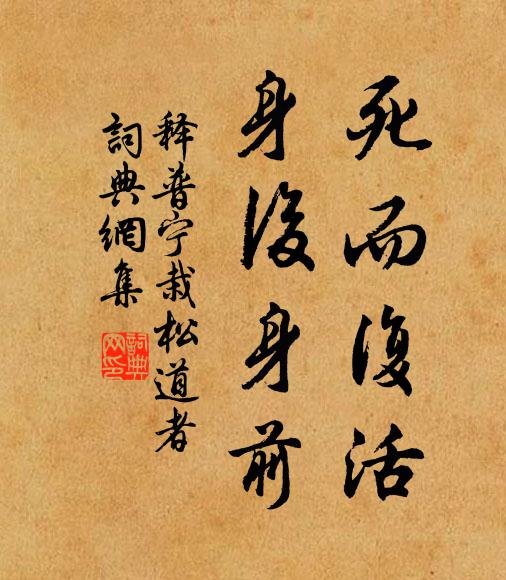 死而復活
身後身前
释普宁栽松道者
詞典網集
詞典
网印